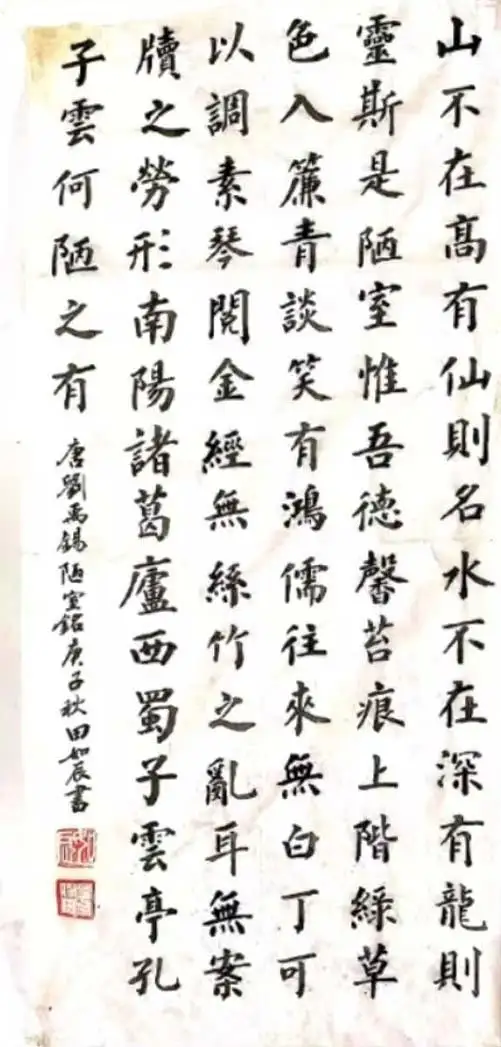 山不在高有仙則名水不在深有龍則
靈斯是陋室惟吾德馨苔痕上階綠草
色入簾青談笑有鴻儒往來無白丁可
以調素琴閱金經無絲竹之亂耳無案
牘之勞形南陽諸葛廬西蜀子雲亭孔
子雲何陋之有
唐劉禹錫陋室銘庚子秋田如辰書